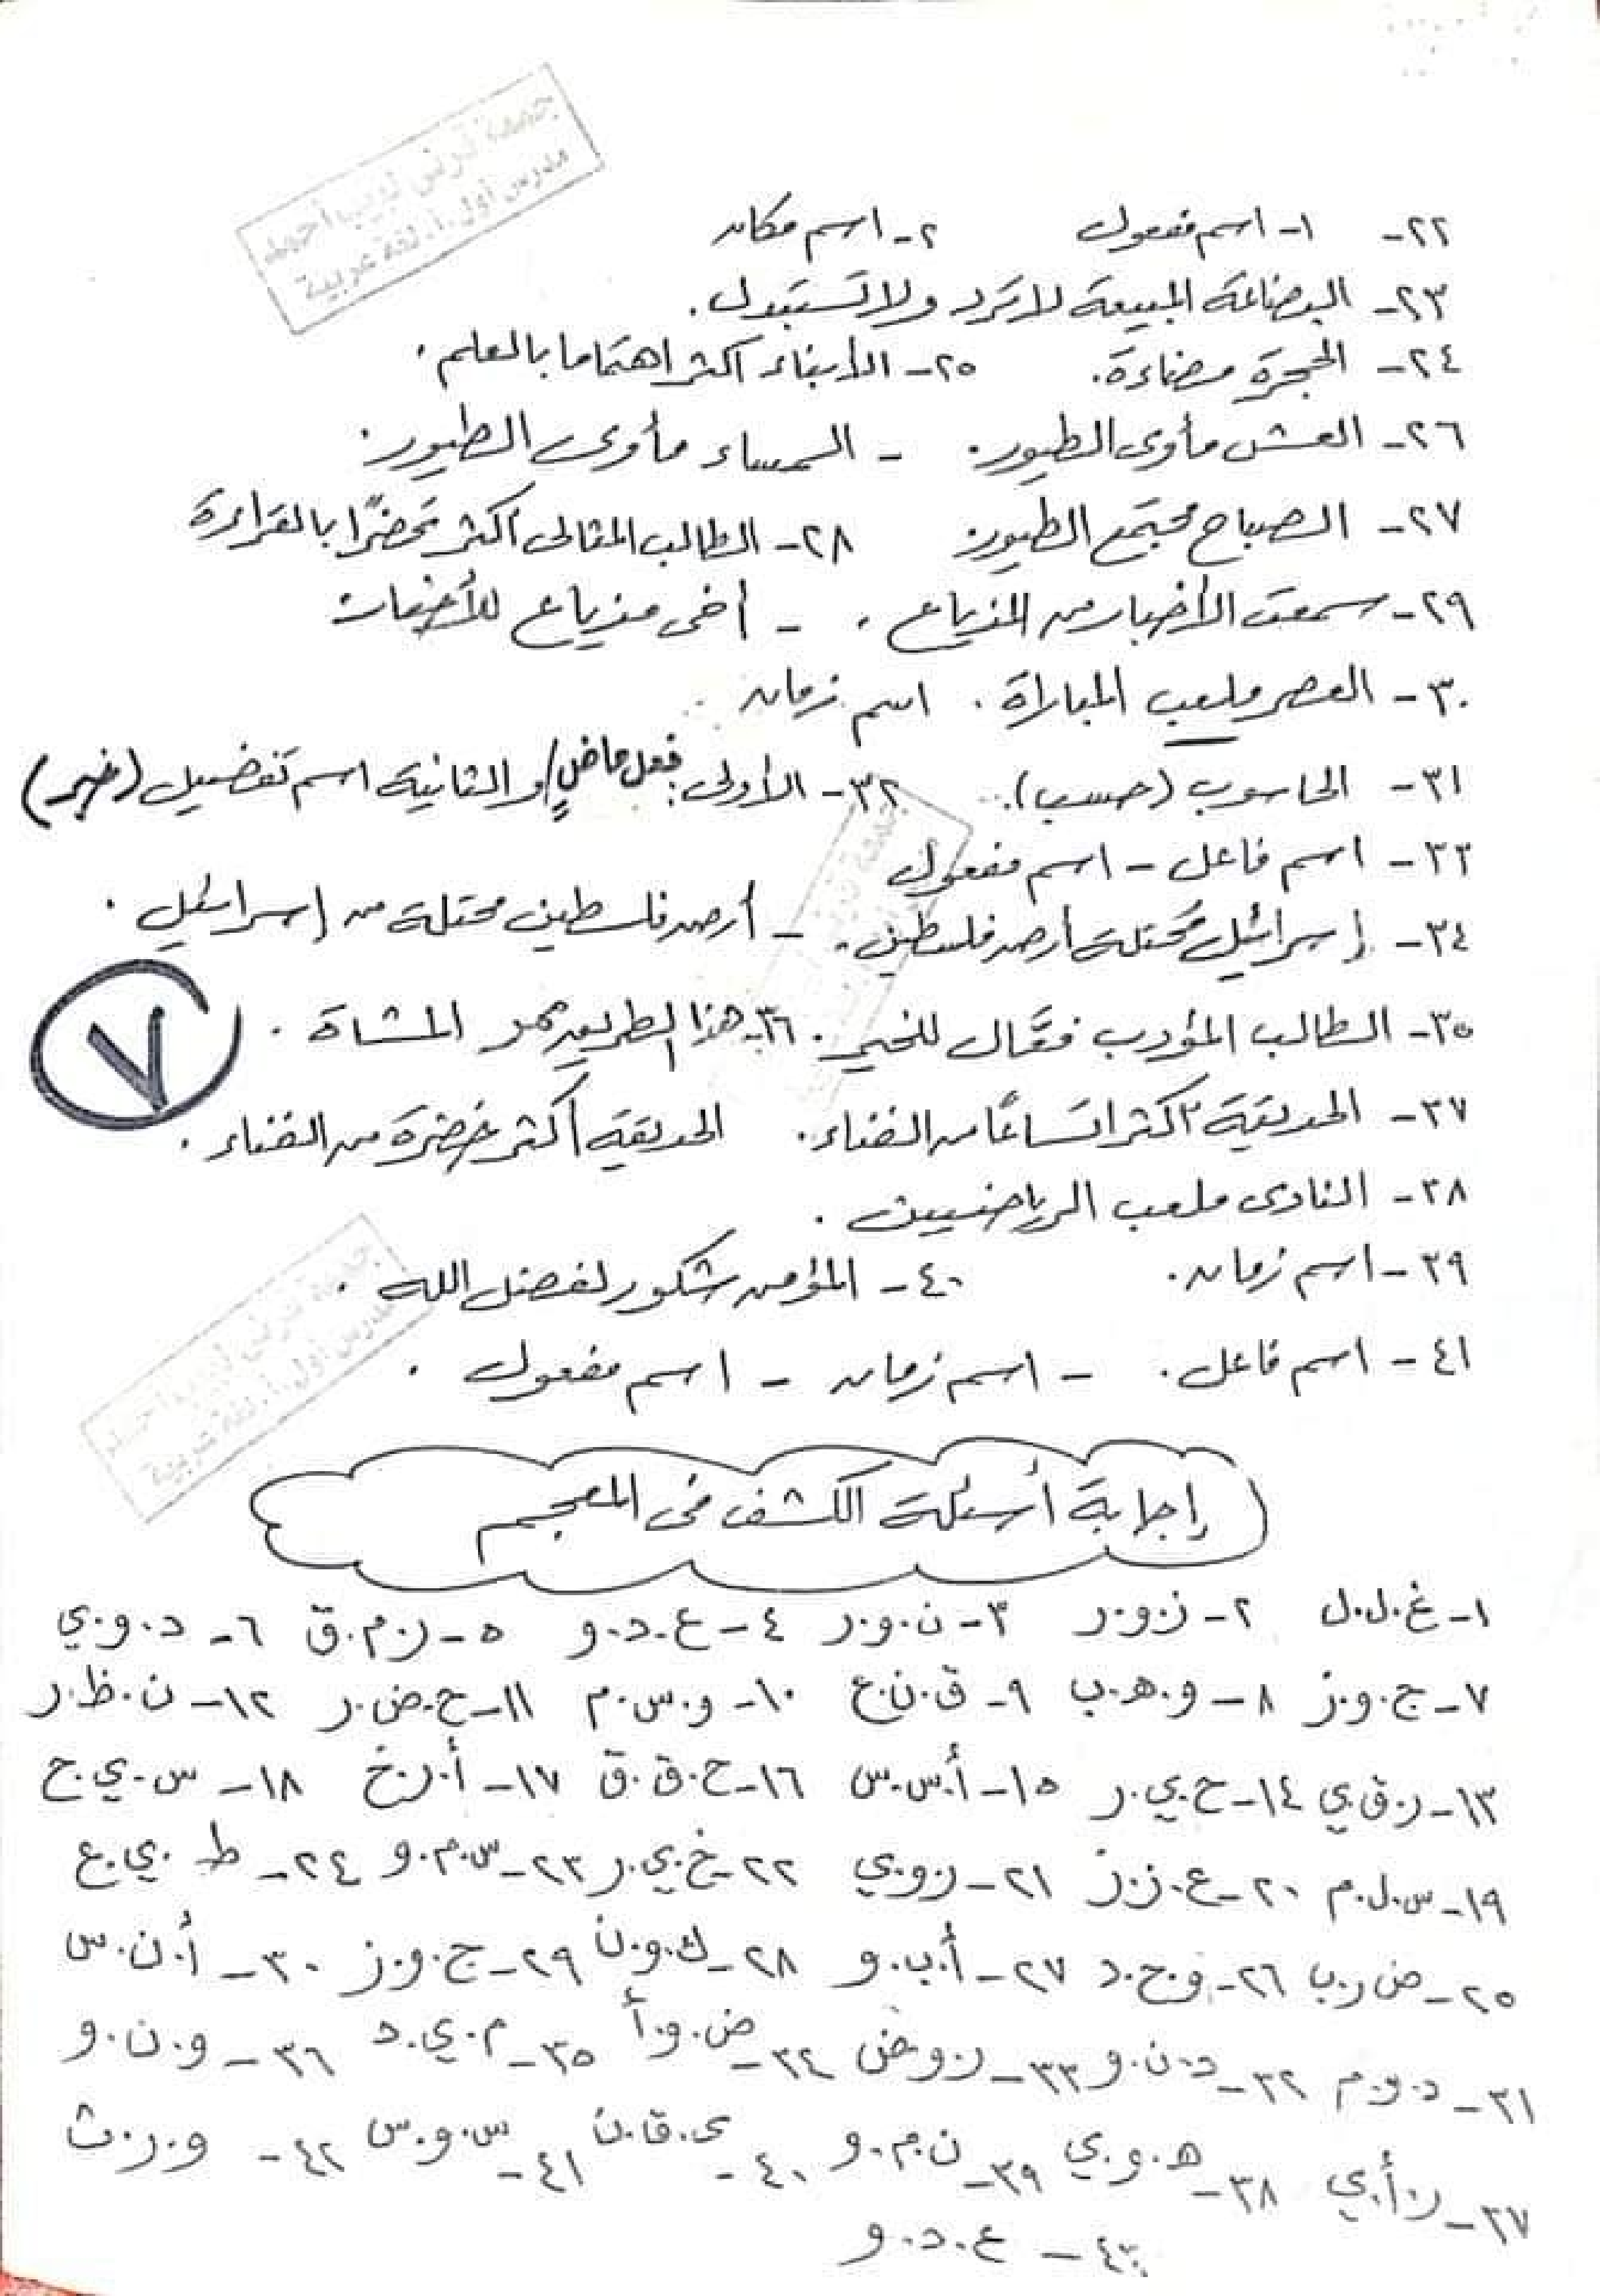 جمعة قرني لبيب أحمد
مدرس أول أ. لغة عربية
٢٢- ١- اسم مفعول ٢- اسم مكان
٢٣- البضاعة المبيعة لا تُرد ولا تُستبدل.
٢٤- الحجرة مضاءة. ٢٥- الأبناء أكثر اهتماما بالعلم.
٢٦- العش مأوى الطيور. - المساء مأوى الطيور.
٢٧- الصباح مجتمع الطيور. ٢٨- الطالب المثالى أكثر تحضرًا بالقراءة
٢٩- سمعت الأخبار من المذياع. - أخى مذياع للأخبار
٣٠- العصر ملعب المباراة. اسم زمان.
٣١- الحاسوب (حسب). ٣٢- الأولى: فعل ماضٍ / والثانية اسم تفضيل (خير)
٣٣- اسم فاعل - اسم مفعول
٣٤- إسرائيل مُحتلة أرض فلسطين. - أرض فلسطين محتلة من إسرائيل.
٣٥- الطالب المؤدب فعَّال للخير. ٣٦- هذا الطريق ممر المشاة.
٧
٣٧- الحديقة أكثر اتساعًا من الفناء. الحديقة أكثر خضرة من الفناء.
٣٨- النادى ملعب الرياضيين.
٣٩- اسم زمان. ٤٠- المؤمن شكور لفضل الله.
٤١- اسم فاعل. - اسم زمان - اسم مفعول.
إجابة أسئلة الكشف فى المعجم
١- غ.ل.ل ٢- ز.و.ر ٣- ن.و.ر ٤- ع.د.و ٥- ر.م.ق ٦- د.و.ي
٧- ج.و.ز ٨- و.ه.ب ٩- ق.ن.ع ١٠- و.س.م ١١- ح.ض.ر ١٢- ن.ظ.ر
١٣- ر.ق.ي ١٤- ح.ي.ر ١٥- أ.س.س ١٦- ح.ق.ق ١٧- أ.ر.خ ١٨- س.ي.ح
١٩- س.ل.م ٢٠- ع.ز.ز ٢١- ر.و.ي ٢٢- خ.ي.ر ٢٣- س.م.و ٢٤- ط.ي.ع
٢٥- ض.ر.ب ٢٦- و.ح.د ٢٧- أ.ب.و ٢٨- ك.و.ن ٢٩- ج.و.ز ٣٠- أ.ن.س
٣١- د.و.م ٣٢- د.ن.و ٣٣- ر.و.ض ٣٤- ض.و.أ ٣٥- م.ي.د ٣٦- و.ن.و
٣٧- ر.أ.ي ٣٨- ه.و.ي ٣٩- ن.م.و ٤٠- ى.ق.ن ٤١- س.و.س ٤٢- و.ر.ث
٤٣- ع.د.و